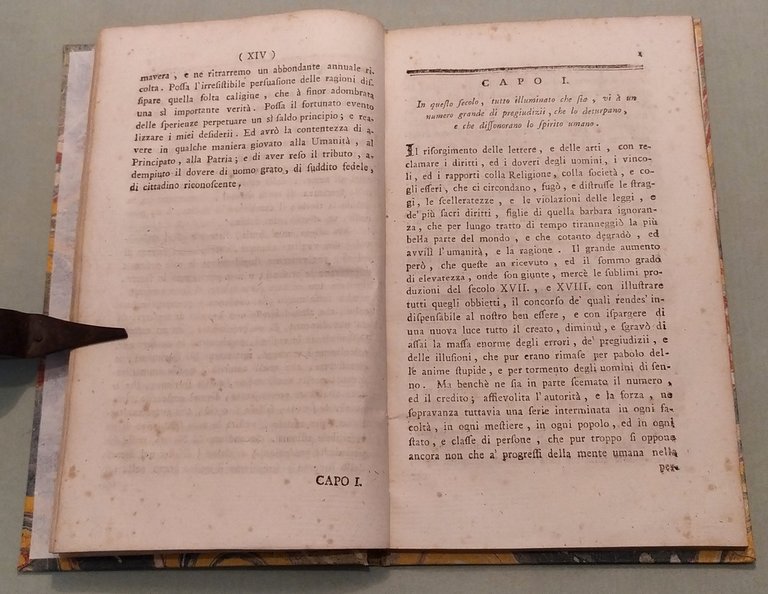 ( XIV )
mavera , e ne ritrarremo un abbondante annuale ri-
colta. Poſſa l'irreſiſtibile perſuaſione delle ragioni diſ-
ſipare quella folta caligine, che à finor adombrata
una sì importante verità. Poſſa il fortunato evento
delle ſperienze perpetuare un sì ſaldo principio; e rea-
lizzare i miei deſiderii. Ed avrò la contentezza di a-
vere in qualche maniera giovato alla Umanità, al
Principato, alla Patria; e di aver reſo il tributo, a-
dempiuto il dovere di uomo grato, di ſuddito fedele,
di cittadino riconoſcente.
CAPO I.
CAPO I.
In queſto ſecolo, tutto illuminato che ſia, vi à un
numero grande di pregiudizii, che lo deturpano,
e che diſſonorano lo ſpirito umano.
Il riſorgimento delle lettere, e delle arti, con re-
clamare i diritti, ed i doveri degli uomini, i vinco-
li, ed i rapporti colla Religione, colla ſocietà, e co-
gli eſſeri, che ci circondano, fugò, e diſtruſſe le ſtrag-
gi, le ſcelleratezze, e le violazioni delle leggi, e
de' più ſacri diritti, figlie di quella barbara ignoran-
za, che per lungo tratto di tempo tiranneggiò la più
bella parte del mondo, e che cotanto degradò, ed
avvilì l'umanità, e la ragione. Il grande aumento
però, che queſte an ricevuto, ed il ſommo grado
di elevatezza, onde ſon giunte, mercè le ſublimi pro-
duzioni del ſecolo XVII., e XVIII. con illuſtrare
tutti quegli obbietti, il concorſo de' quali rendeſ' in-
diſpenſabile al noſtro ben eſſere, e con iſpargere di
una nuova luce tutto il creato, diminuì, e ſgravò di
aſſai la maſſa enorme degli errori, de' pregiudizii, e
delle illuſioni, che pur erano rimaſe per pabolo del-
le anime ſtupide, e per tormento degli uomini di ſen-
no. Ma benchè ne ſia in parte ſcemato il numero,
ed il credito; affievolita l'autorità, e la forza, ne
ſopravanza tuttavia una ſerie interminata in ogni fa-
coltà, in ogni meſtiere, in ogni popolo, ed in ogni
ſtato, e claſſe di perſone, che pur troppo ſi oppone
ancora non che a' progreſſi della mente umana nella
per-